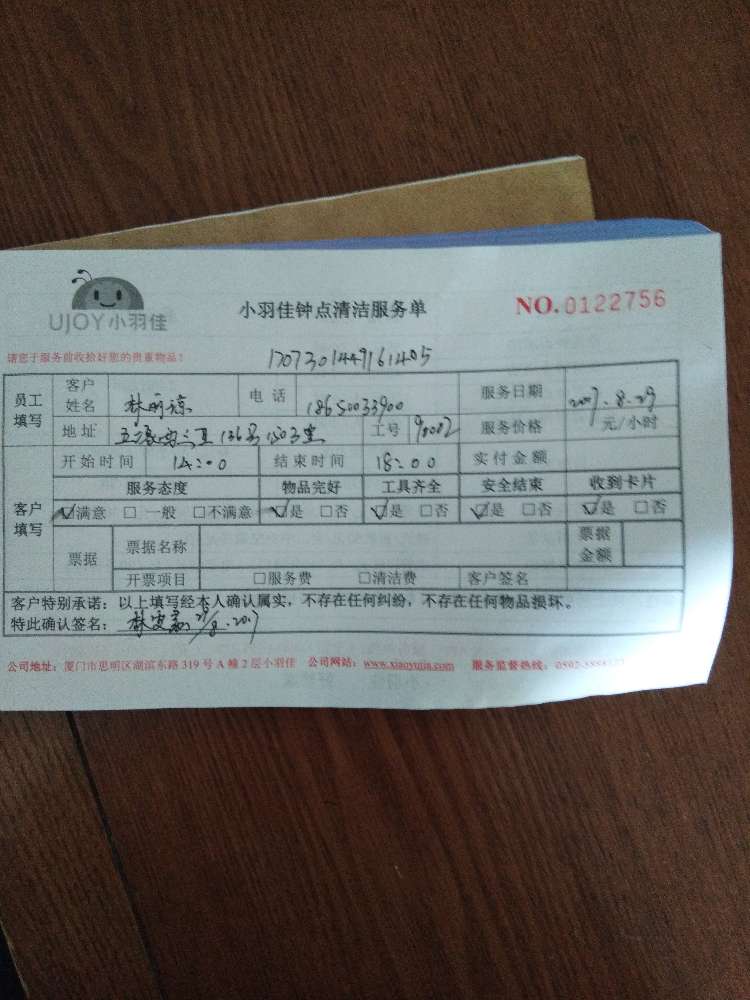 UJOY小羽佳
小羽佳钟点清洁服务单
NO.0122756
请您于服务前收拾好您的贵重物品!
1707301449161405
员工填写 客户姓名 电话 18650033900 服务日期 2017.8.29
地址 136号 1503室 工号 90002 服务价格 元/小时
客户填写 开始时间 14:00 结束时间 18:00 实付金额
服务态度 物品完好 工具齐全 安全结束 收到卡片
☑满意 □一般 □不满意 ☑是 □否 ☑是 □否 ☑是 □否 ☑是 □否
票据 票据名称 票据金额
开票项目 □服务费 □清洁费 客户签名
客户特别承诺:以上填写经本人确认属实,不存在任何纠纷,不存在任何物品损坏。
特此确认签名: 29/8.2017
公司地址:厦门市思明区湖滨东路319号A幢2层小羽佳 公司网站:www.xiaoyujia.com 服务监督热线: